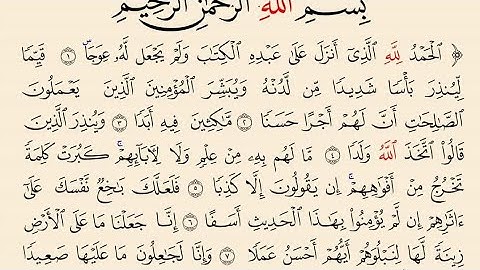 بِسْمِ اللَّهِ الرَّحْمَٰنِ الرَّحِيمِ
﴿ الْحَمْدُ لِلَّهِ الَّذِي أَنزَلَ عَلَىٰ عَبْدِهِ الْكِتَابَ وَلَمْ يَجْعَل لَّهُ عِوَجًا ۜ ١ قَيِّمًا
لِّيُنذِرَ بَأْسًا شَدِيدًا مِّن لَّدُنْهُ وَيُبَشِّرَ الْمُؤْمِنِينَ الَّذِينَ يَعْمَلُونَ
الصَّالِحَاتِ أَنَّ لَهُمْ أَجْرًا حَسَنًا ٢ مَّاكِثِينَ فِيهِ أَبَدًا ٣ وَيُنذِرَ الَّذِينَ
قَالُوا اتَّخَذَ اللَّهُ وَلَدًا ٤ مَّا لَهُم بِهِ مِنْ عِلْمٍ وَلَا لِآبَائِهِمْ ۚ كَبُرَتْ كَلِمَةً
تَخْرُجُ مِنْ أَفْوَاهِهِمْ ۚ إِن يَقُولُونَ إِلَّا كَذِبًا ٥ فَلَعَلَّكَ بَاخِعٌ نَّفْسَكَ عَلَىٰ
ءَاثَارِهِمْ إِن لَّمْ يُؤْمِنُوا بِهَٰذَا الْحَدِيثِ أَسَفًا ٦ إِنَّا جَعَلْنَا مَا عَلَى الْأَرْضِ
زِينَةً لَّهَا لِنَبْلُوَهُمْ أَيُّهُمْ أَحْسَنُ عَمَلًا ٧ وَإِنَّا لَجَاعِلُونَ مَا عَلَيْهَا صَعِيدًا